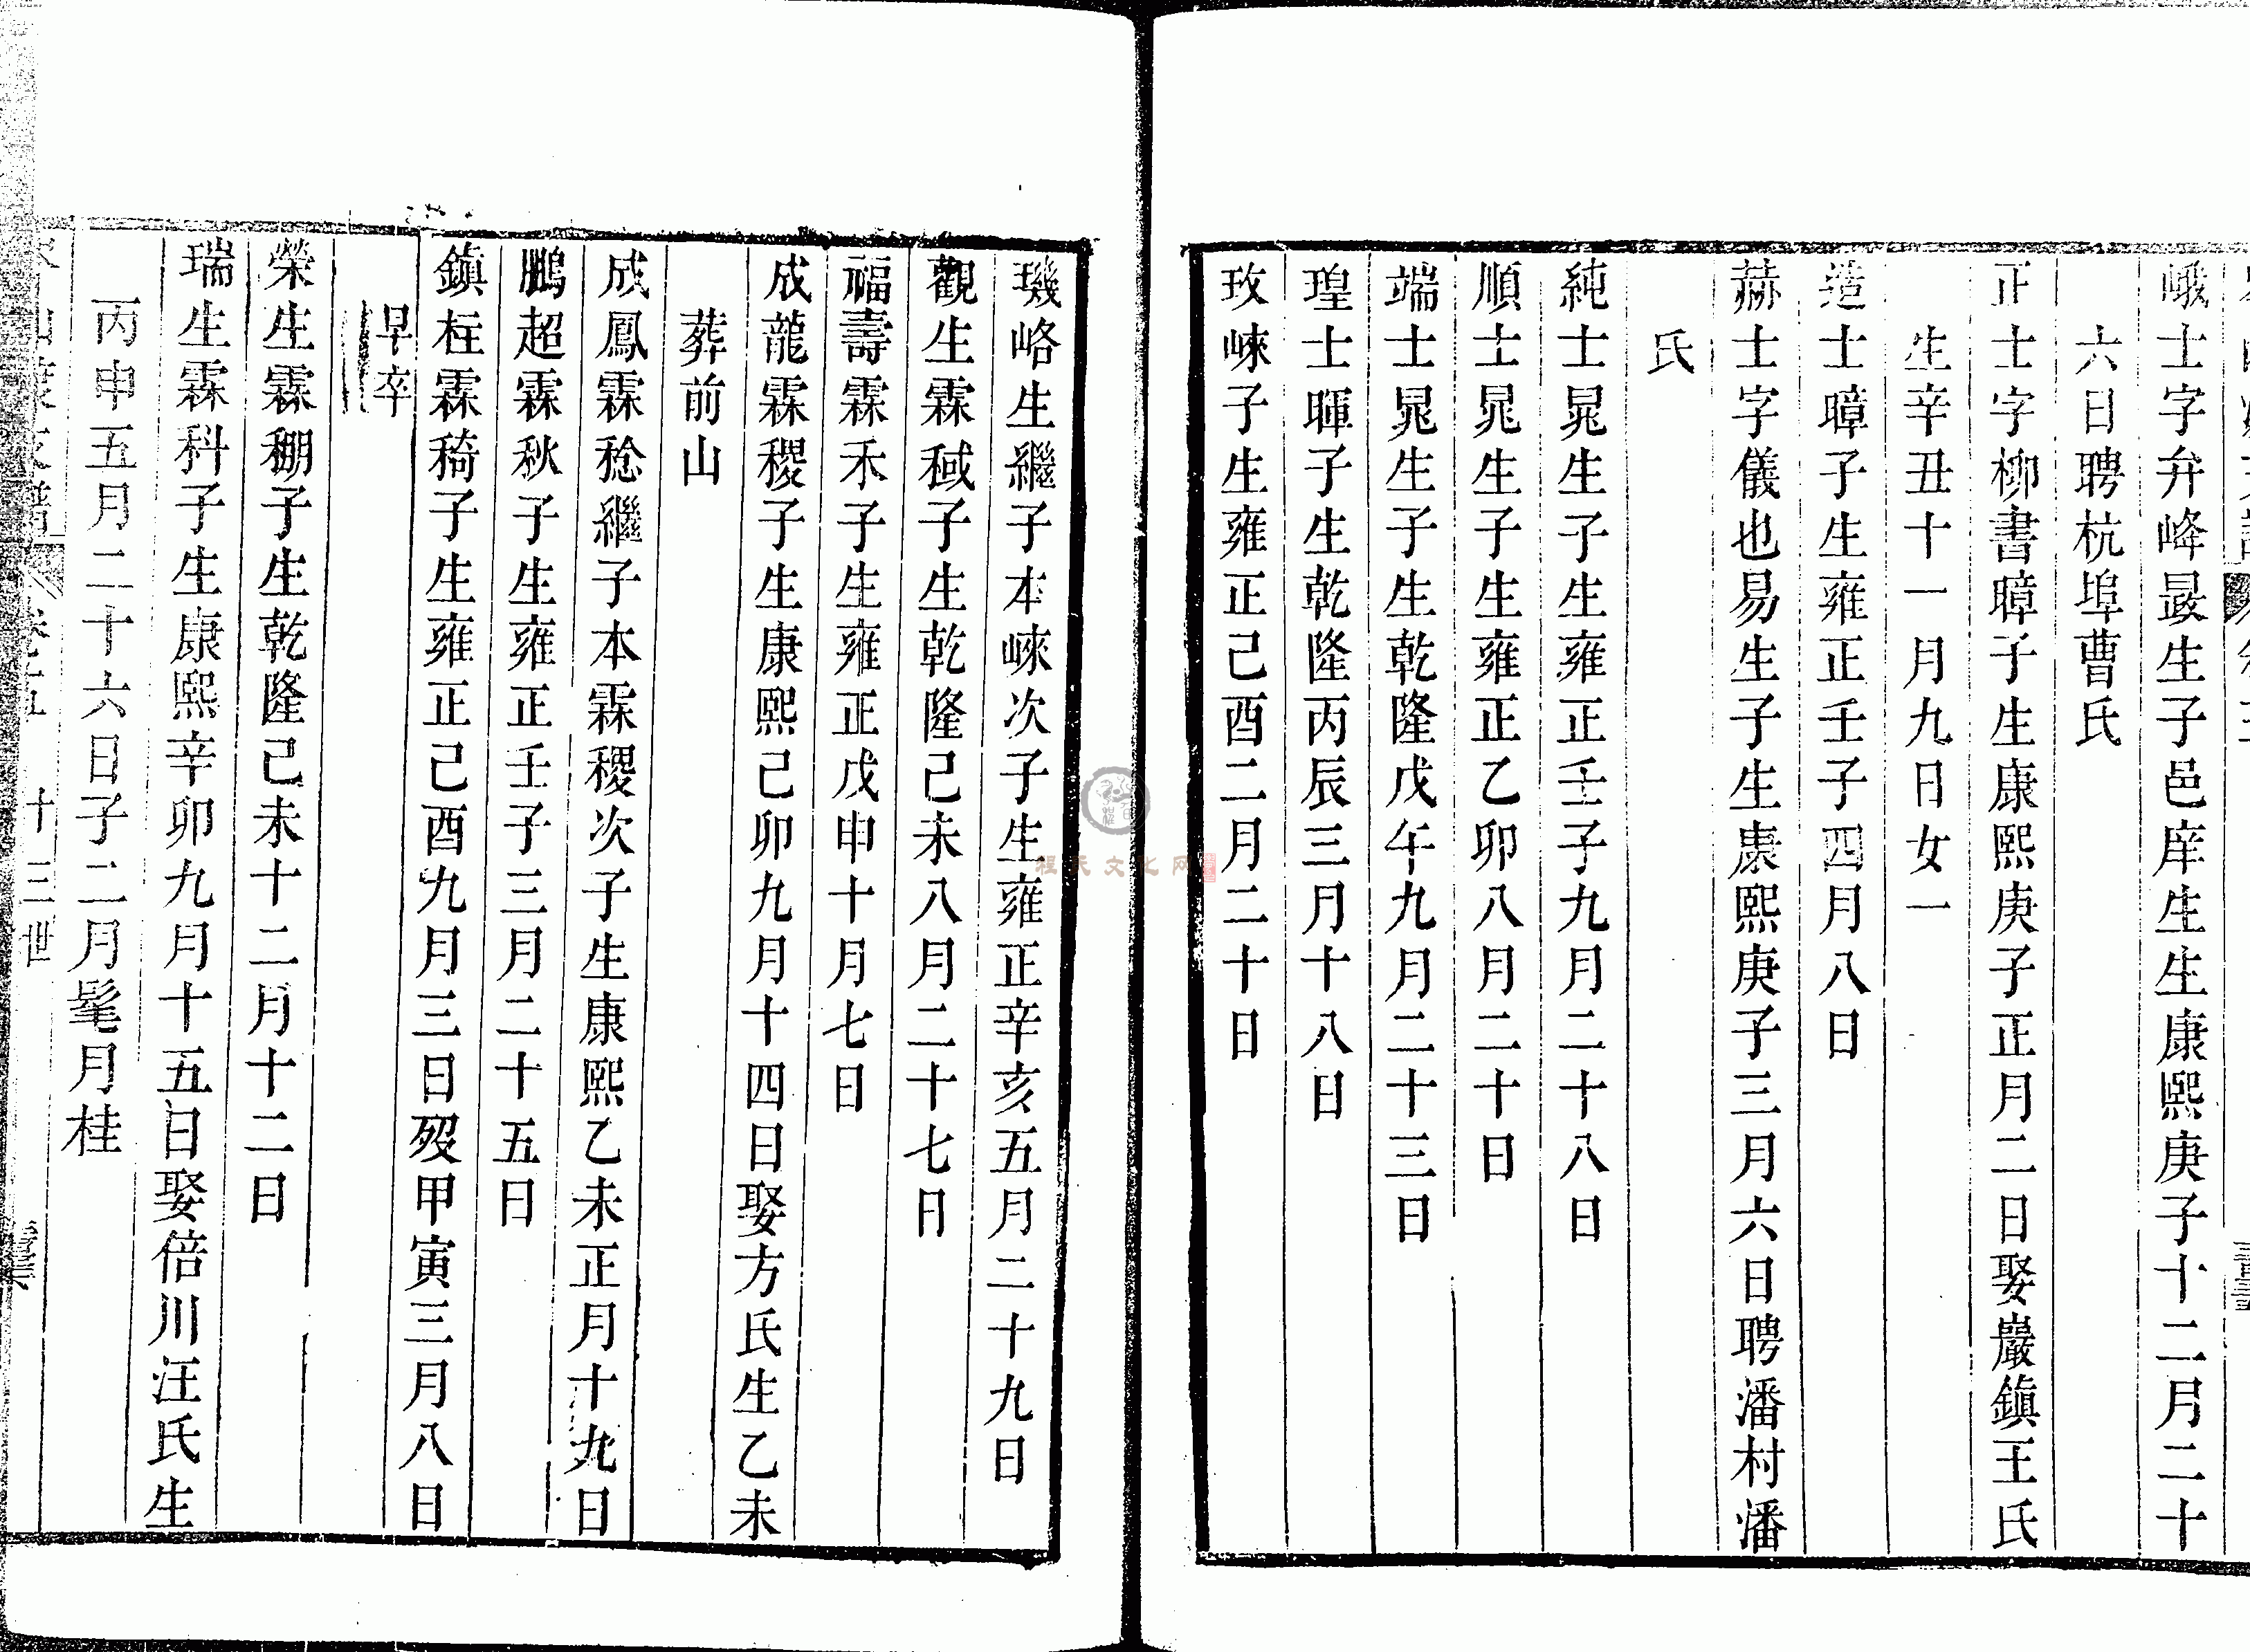 峨士字弁峰晸生子邑庠生生康熙庚子十二月二十
六日聘杭埠曹氏
正士字柳書暲子生康熙庚子正月二日娶巖鎮王氏
生辛丑十一月九日女一
造士暲子生雍正壬子四月八日
赫士字儀也易生子生康熙庚子三月六日聘潘村潘
氏
純士晁生子生雍正壬子九月二十八日
順士晁生子生雍正乙卯八月二十日
端士晁生子生乾隆戊午九月二十三日
瑝士暉子生乾隆丙辰三月十八日
玫崍子生雍正己酉二月二十日
璣峈生繼子本崍次子生雍正辛亥五月二十九日
觀生霖稢子生乾隆己未八月二十七日
福壽霖禾子生雍正戊申十月七日
成龍霖稷子生康熙己卯九月十四日娶方氏生乙未
葬前山
成鳳霖稔繼子本霖稷次子生康熙乙未正月十九日
鵬超霖秋子生雍正壬子三月二十五日
鎮柱霖稿子生雍正己酉九月三日歿甲寅三月八日
早卒
榮生霖稝子生乾隆己未十二月十二日
瑞生霖科子生康熙辛卯九月十五日娶倍川汪氏生
丙申五月二十六日子二月髦月桂
卷五 十三世
程氏文化网